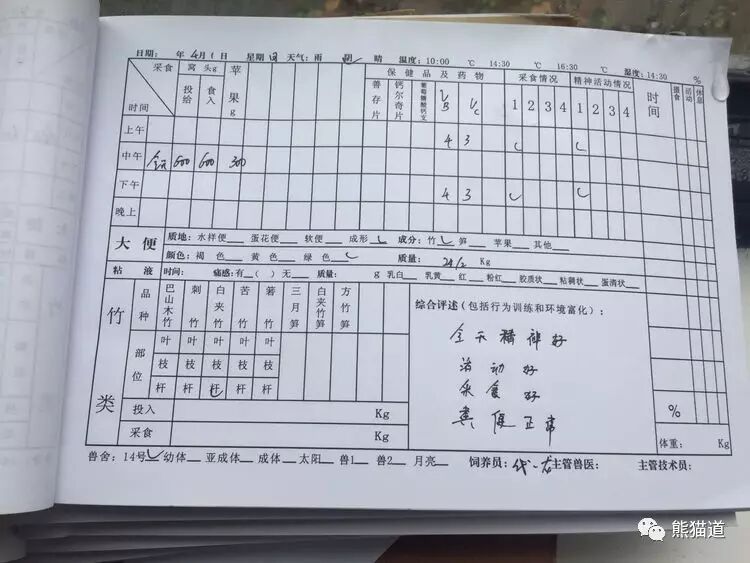 日期: 年 4月1日 星期四 天气: 雨 阴 晴 温度: 10:00 ℃ 14:30 ℃ 16:30 ℃ 湿度: 14:30 %
采食 时间 窝头g 苹果g 保健品及药物 采食情况 精神活动情况 时间 摄食 活动 休息
投给 食入 善存片 钙尔奇片 葡萄糖酸钙支 VB VC 1 2 3 4 1 2 3 4
上午 4 3
中午 全天 600 600 300
下午 4 3
晚上
大便 质地: 水样便 蛋花便 软便 成形 成分: 竹 笋 苹果 其他
颜色: 褐色 黄色 绿色 质量: Kg
粘液 时间: 痛感: 有 ( ) 无 质量: g 乳白 乳黄 红 粉红 胶质状 粘稠状 蛋清状
竹类 品种 巴山木竹 刺竹 白夹竹 苦竹 箬竹 三月笋 白夹竹笋 方竹笋
部位 叶 叶 叶 叶 叶
枝 枝 枝 枝 枝
杆 杆 杆 杆 杆
投入 Kg
采食 Kg
综合评述(包括行为训练和环境富化):
全天精神好
活动好
采食好
粪便正常
%
体重: Kg
兽舍: 14号 幼体 亚成体 成体 太阳 兽1 兽2 月亮 饲养员: 主管兽医: 主管技术员:
熊猫道